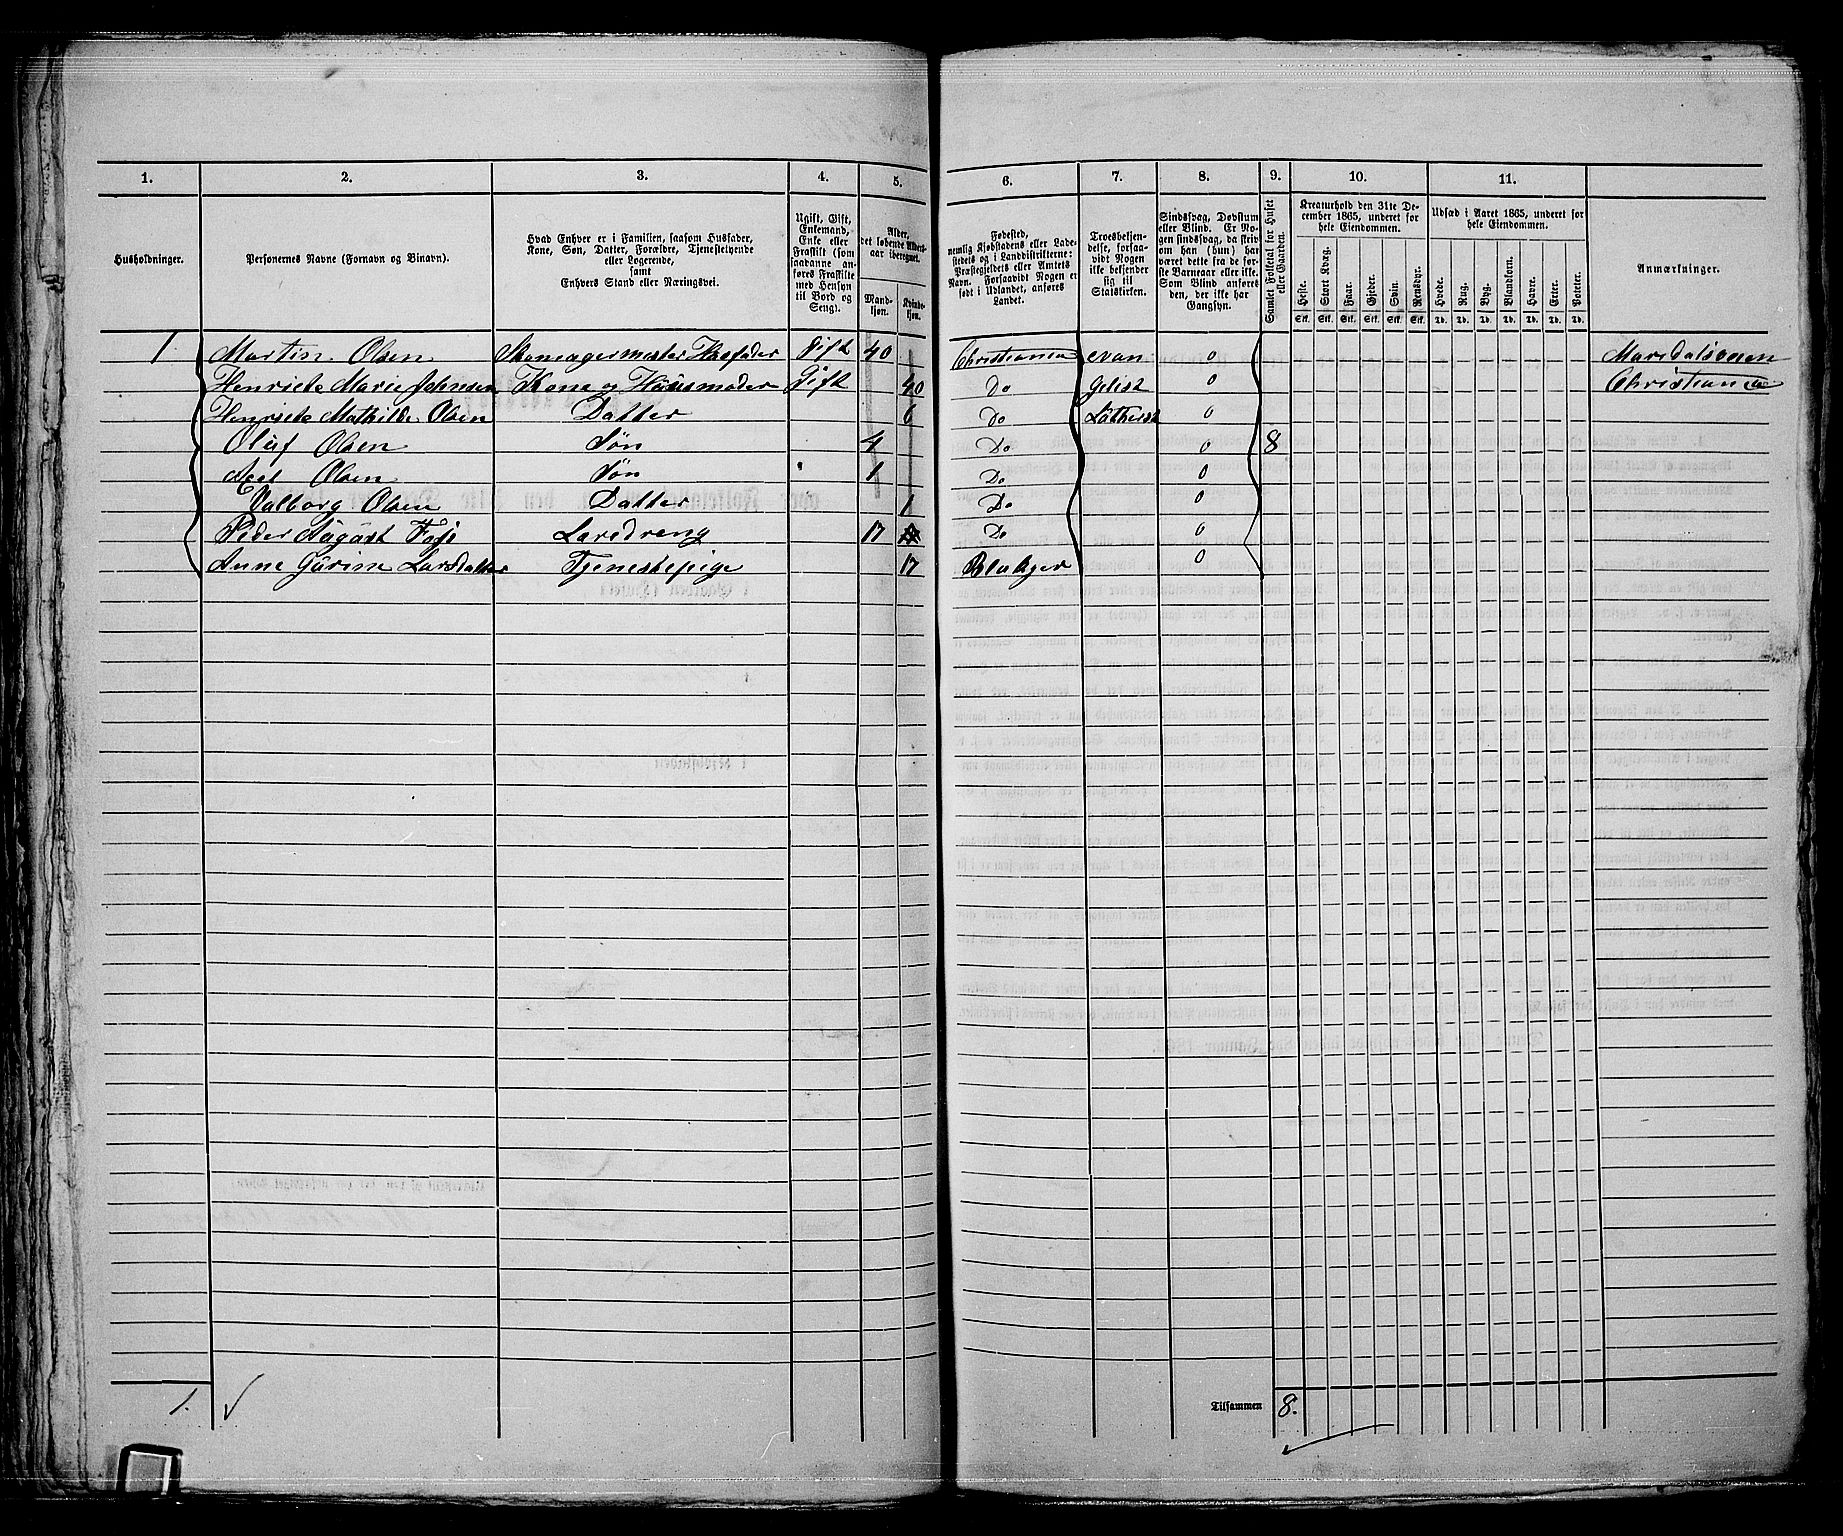 1. 2. 3. 4. 5. 6. 7. 8. 9. 10. 11.
Husholdninger.
Personernes Navne (Fornavn og Binavn).
Hvad Enhver er i Familien, saasom Husfader,
Kone, Søn, Datter, Forældre, Tjenestetyende
eller Logerende,
samt
Enhvers Stand eller Næringsvei.
Ugift, Gift,
Enkemand,
Enke eller
Fraskilt (som
saadanne an-
føres Fraskilte
med Hensyn
til Bord og
Seng).
Alder,
det løbende Alders-
aar iberegnet.
Mand-
kjøn.
Kvinde-
kjøn.
Fødested,
nemlig Kjøbstadens eller Lade-
stedets og i Landdistrikterne:
Præstegjeldets eller Amtets
Navn. Forsaavidt Nogen er
født i Udlandet, anføres
Landet.
Troesbekjen-
delse, forsaa-
vidt Nogen
ikke bekjender
sig til
Statskirken.
Sindssvag, Døvstum
eller Blind. Er No-
gen sindssvag, da skriv
om han (hun) har
været dette fra de før-
ste Barneaar eller ikke.
Som Blind anføres
den, der ikke har
Gangsyn.
Samlet Folketal for Huset
eller Gaarden.
Kreaturhold den 31te De-
cember 1865, underet for
hele Eiendommen.
Heste. Stort Kvæg. Faar. Gjeder. Svin. Rensdyr.
Stk. Stk. Stk. Stk. Stk. Stk.
Udsæd i Aaret 1865, underet for
hele Eiendommen.
Hvede. Rug. Byg. Blandkorn. Havre. Erter. Poteter.
Td. Td. Td. Td. Td. Td. Td.
Anmærkninger.
1 Martin Olsen Skomagermester Husfader Gift 40 Christiania evan 0 Maridalsveien
Henriete Marie Johnsen Kone og Huusmoder Gift 40 Do gelist 0 Christiania
Henriete Mathilde Olsen Datter 6 Do Luthersk 0
Oluf Olsen Søn 4 Do 0 8
Axel Olsen Søn 1 Do 0
Valborg Olsen Datter 1 Do 0
Peder August Laredreng 17 Do 0
Anne Gurine Larsdatter Tjenestepige 17 Blakjer 0
1.
Tilsammen 8.